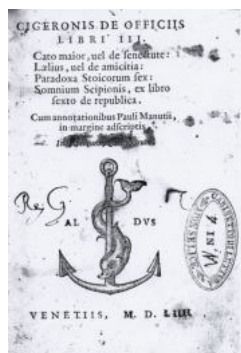 CICERONIS DE OFFICIIS
LIBRI III.
Cato maior, uel de senectute:
Lælius, uel de amicitia:
Paradoxa Stoicorum sex:
Somnium Scipionis, ex libro
sexto de republica.
Cum annotationibus Pauli Manutii,
in margine adscriptis.
AL DVS
VENETIIS, M. D.